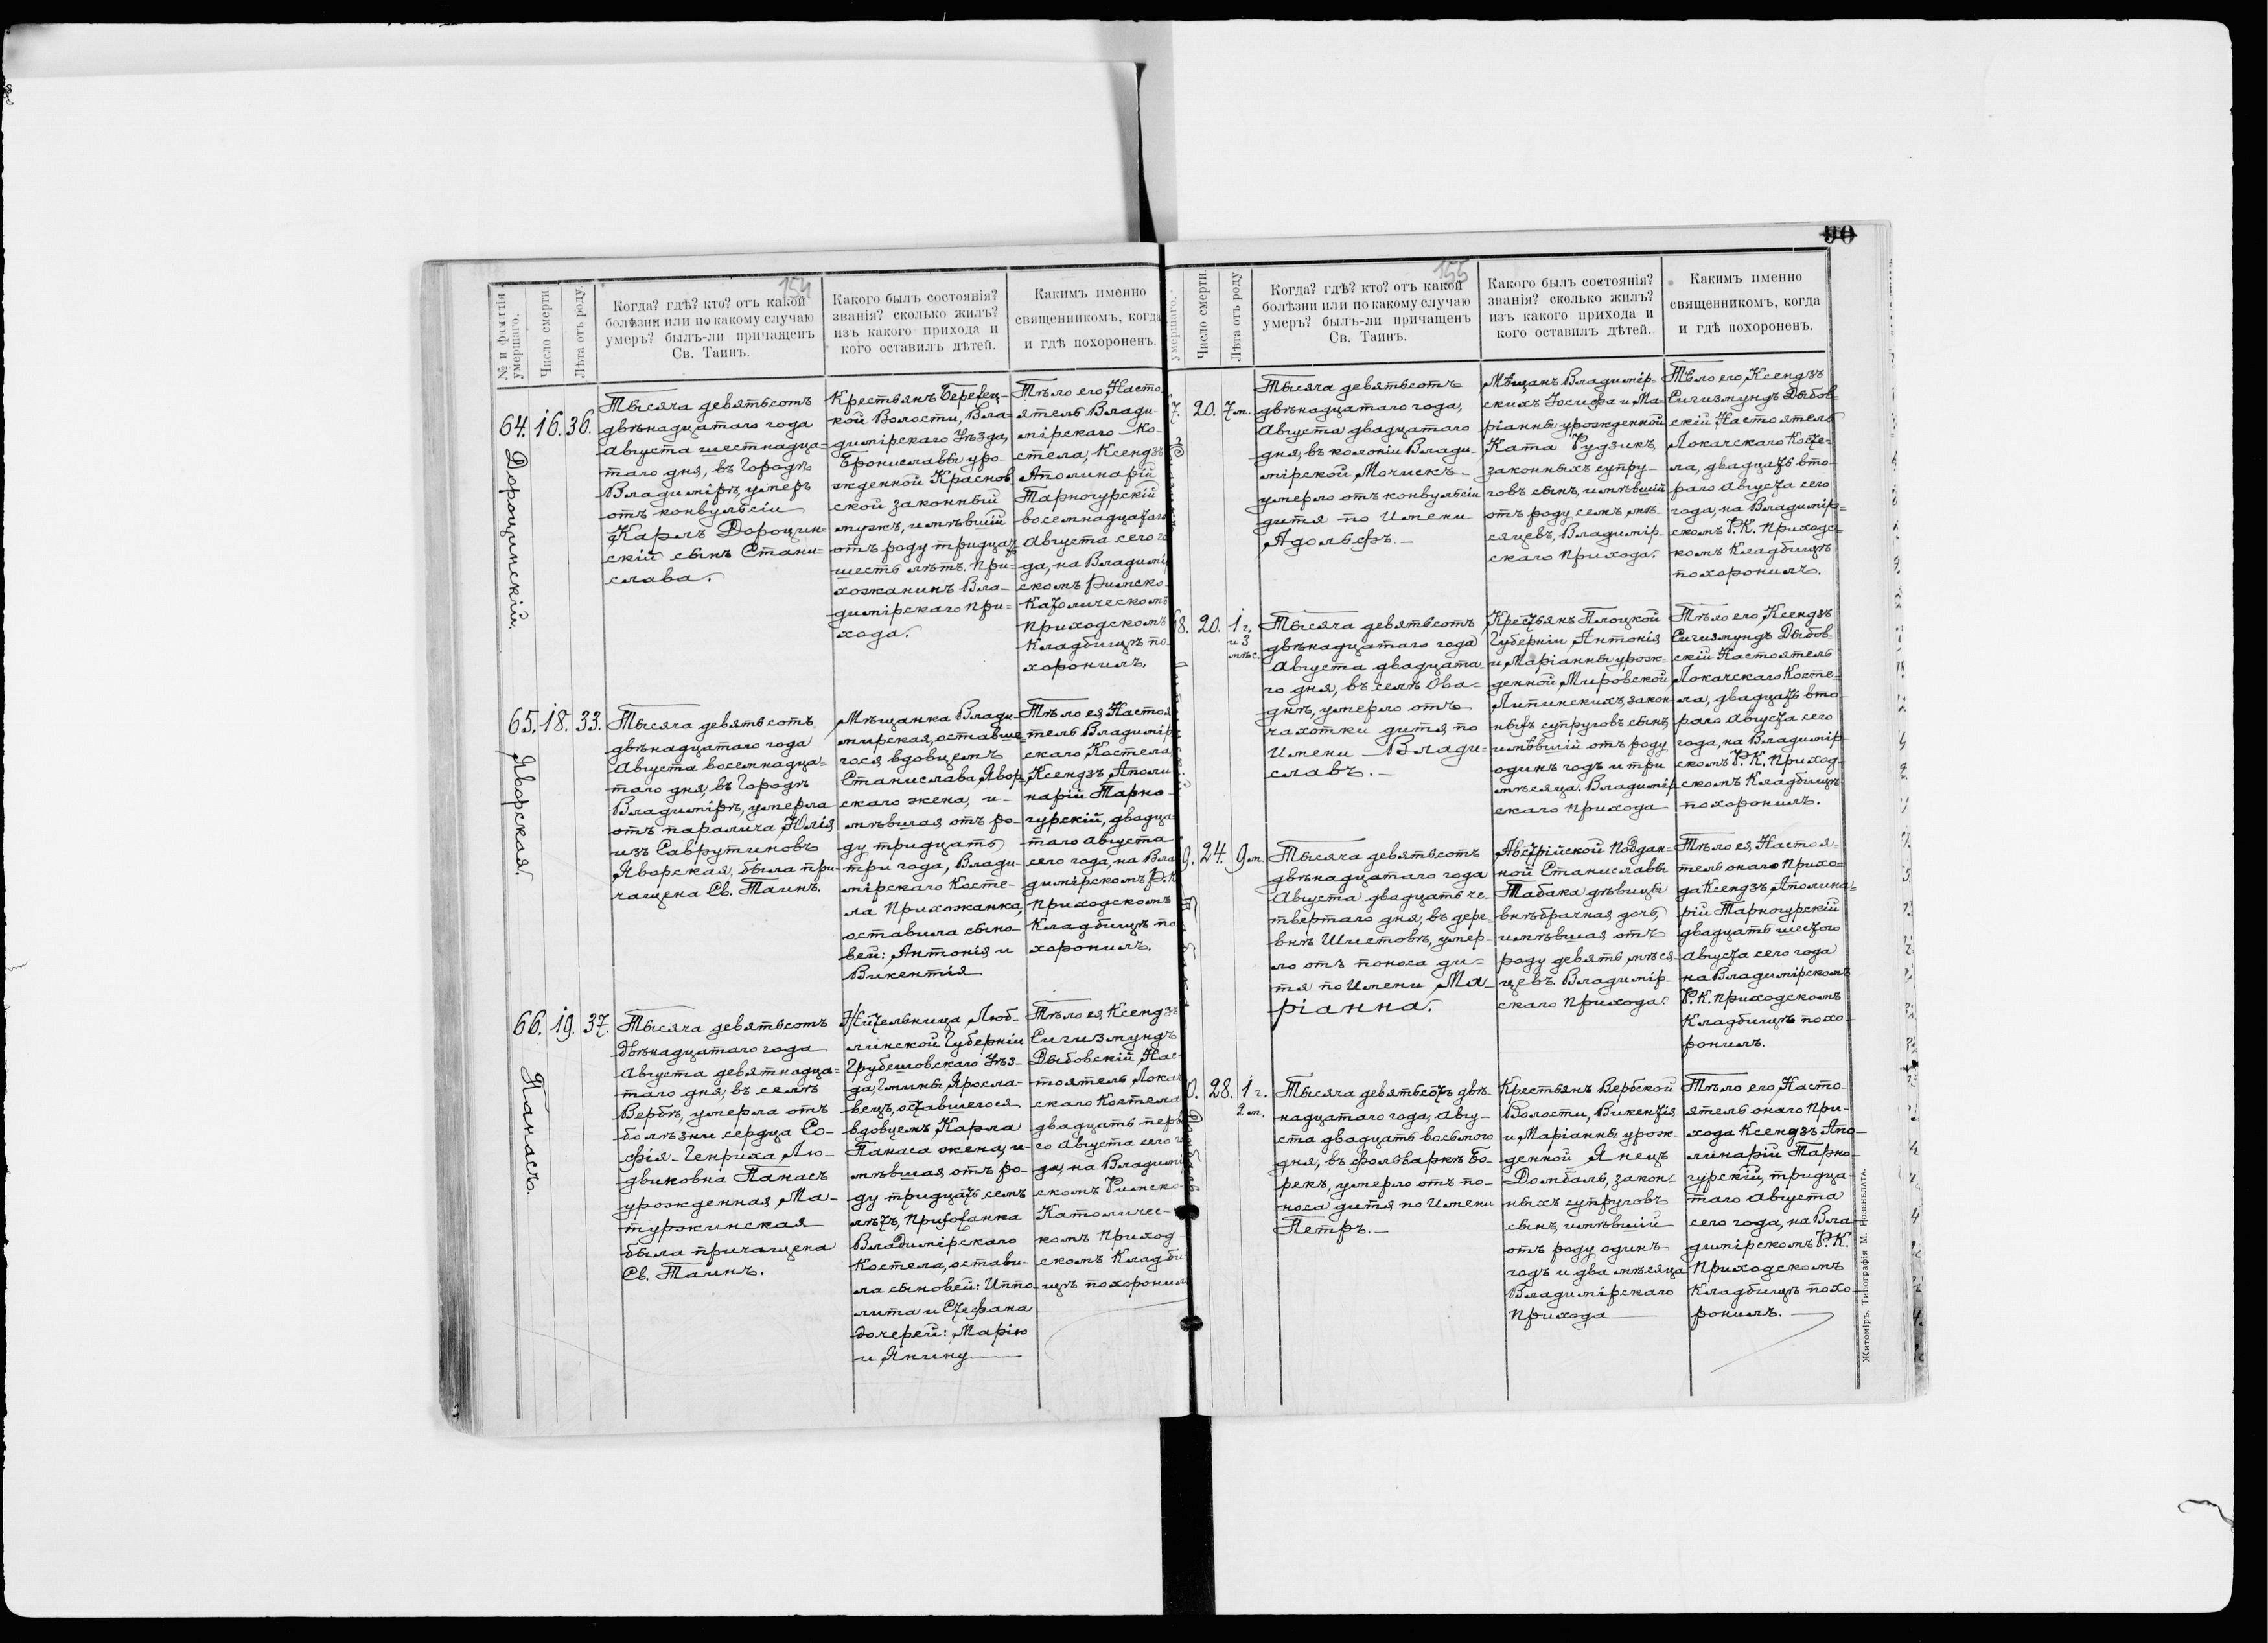 154
№ и фамилія
умершаго.
Число смерти.
Лѣта отъ роду.
Когда? гдѣ? кто? отъ какой
болѣзни или по какому случаю
умеръ? былъ-ли причащенъ
Св. Таинъ.
Какого былъ состоянія?
званія? сколько жилъ?
изъ какого прихода и
кого оставилъ дѣтей.
Какимъ именно
священникомъ, когда
и гдѣ похороненъ.
64. 16. 36.
Дороцинскій.
Тысяча девятьсотъ
двѣнадцатаго года
Августа шестнадца=
таго дня, въ Городѣ
Владимірѣ, умеръ
отъ конвульсіи
Карлъ Дороцин=
скій сынъ Стани=
слава.
Крестьянъ Березец-
кой Волости, Вла-
димірскаго Уѣзда,
Брониславы уро-
жденной Краснов-
ской законный
мужъ, имѣвшій
отъ роду тридцать
шесть лѣтъ. При=
хожанинъ Вла-
димірскаго При=
хода.
Тѣло его, Насто
ятель Влади-
мірскаго Ко-
стела, Ксендзъ
Аполинарій
Тарногурскій
восемнадцатаго
Августа сего го
да, на Владимі
скомъ Римско-
Католическомъ
Приходскомъ
Кладбищѣ по-
хоронилъ.
65. 18. 33.
Яворская.
Тысяча девятьсотъ
двѣнадцатаго года
Августа восемнадца=
таго дня, въ Городѣ
Владимірѣ, умерла
отъ паралича Юлія
изъ Саврутиновъ
Яворская, была при
чащена Св. Таинъ.
Мѣщанка Влади-
мирская, оставше-
гося вдовцемъ
Станислава Явор-
скаго жена, и-
мѣвшая отъ ро-
ду тридцать
три года, Влади-
мірскаго Косте-
ла Прихожанка,
оставила сыно-
вей: Антонія и
Викентія
Тѣло ея, Настоя
тель Владимір
скаго Костела
Ксендзъ Аполи
нарій Тарно-
гурскій, двадца=
таго Августа
сего года, на Вла
димірскомъ Р.К
Приходскомъ
Кладбищѣ по
хоронилъ.
66. 19. 37.
Панасъ.
Тысяча девятьсотъ
двѣнадцатаго года
Августа девятнадца=
таго дня, въ селѣ
Вербѣ, умерла отъ
болѣзни сердца Со-
фія-Генриха Лю-
двиковна Панасъ
урожденная Ма-
туржинская
была причащена
Св. Таинъ.
Жительница Люб-
линской Губерніи
Грубешовскаго Уѣз-
да, Гмины Яросла-
вецъ, оставшегося
вдовцемъ, Карла
Панаса жена, и-
мѣвшая отъ ро-
ду тридцать семь
лѣтъ, Прихожанка
Владимірскаго
Костела, остави-
ла сыновей: Иппо-
лита и Стефана
дочерей: Марію
и Янину
Тѣло ея, Ксендзъ
Сигизмундъ
Дыбовскій, Нас-
тоятель Локач
скаго Костела
двадцать перв
го Августа сего г
да, на Владимі
скомъ Римско-
Католичес-
комъ Приход
скомъ Кладби
щѣ похоронил
90
155
умершаго.
Число смерти.
Лѣта отъ роду
Когда? гдѣ? кто? отъ какой
болѣзни или по какому случаю
умеръ? былъ-ли причащенъ
Св. Таинъ.
Какого былъ состоянія?
званія? сколько жилъ?
изъ какого прихода и
кого оставилъ дѣтей.
Какимъ именно
священникомъ, когда
и гдѣ похороненъ.
7. 20. 7м.
Тысяча девятьсотъ
двѣнадцатаго года,
Августа двадцатаго
дня, въ колоніи Влади-
мірской, Мочискъ-
умерло отъ конвульсіи
дитя по Имени
Адольфъ.-
Мѣщанъ Владимір-
скихъ Іосифа и Ма-
ріанны урожденной
Ката Рудзикъ,
законныхъ супру-
говъ сынъ, имѣвшій
отъ роду семь мѣ-
сяцевъ, Владимір-
скаго Прихода.
Тѣло его, Ксендзъ
Сигизмундъ Дыбов-
скій Настоятель
Локачскаго Косте-
ла, двадцать вто-
раго Августа сего
года, на Владимір=
скомъ Р.К. Приходс-
комъ Кладбищѣ
похоронилъ.
68. 20. 1 г.
и 3
мѣс.
Тысяча девятьсотъ
двѣнадцатаго года
Августа двадцата-
го дня, въ селѣ Ова-
днѣ, умерло отъ
чахотки дитя по
Имени Влади-
славъ.-
Крестьянъ Плоцкой
Губерніи Антонія
и Маріанны урож-
денной Мировской
Липинскихъ, закон-
ныхъ супруговъ сынъ,
имѣвшій отъ роду
одинъ годъ и три
мѣсяца. Владимір
скаго Прихода
Тѣло его, Ксендзъ
Сигизмундъ Дыбов-
скій Настоятель
Локачскаго Косте-
ла, двадцать вто-
раго Августа сего
года, на Владимір
скомъ Р.К. Приход-
скомъ Кладбищѣ
похоронилъ.
9. 24. 9м.
Тысяча девятьсотъ
двѣнадцатаго года
Августа двадцать че-
твертаго дня, въ дере-
внѣ Шистовѣ, умер-
ло отъ поноса ди-
тя по Имени Ма-
ріанна.
Австрійской Поддан=
ной Станиславы
Табака дѣвицы
внѣбрачная дочь,
имѣвшая отъ
роду девять мѣся-
цевъ. Владимір-
скаго Прихода.
Тѣло ея, Настоя-
тель онаго Прихо=
да Ксендзъ, Аполина=
рій Тарногурскій
двадцать шестого
Августа сего года
на Владимірскомъ
Р.К. Приходскомъ
Кладбищѣ похо-
ронилъ.
0. 28. 1 г.
2 м.
Тысяча девятьсотъ двѣ-
надцатаго года, Авгу-
ста двадцать восьмого
дня, въ фольваркѣ Бо-
рекъ, умерло отъ по-
носа дитя по Имени
Петръ.-
Крестьянъ Вербской
Волости, Викентія
и Маріанны урож-
денной Янецъ
Домбаль, закон-
ныхъ супруговъ
сынъ, имѣвшій
отъ роду одинъ
годъ и два мѣсяца
Владимірскаго
Прихода
Тѣло его, Насто-
ятель онаго При-
хода Ксендзъ Апо-
линарій Тарно-
гурскій, тридца-
таго Августа
сего года, на Вла-
димірскомъ Р.К.
Приходскомъ
Кладбищѣ похо-
ронилъ.
Житоміръ, Типографія М. Розенблата.